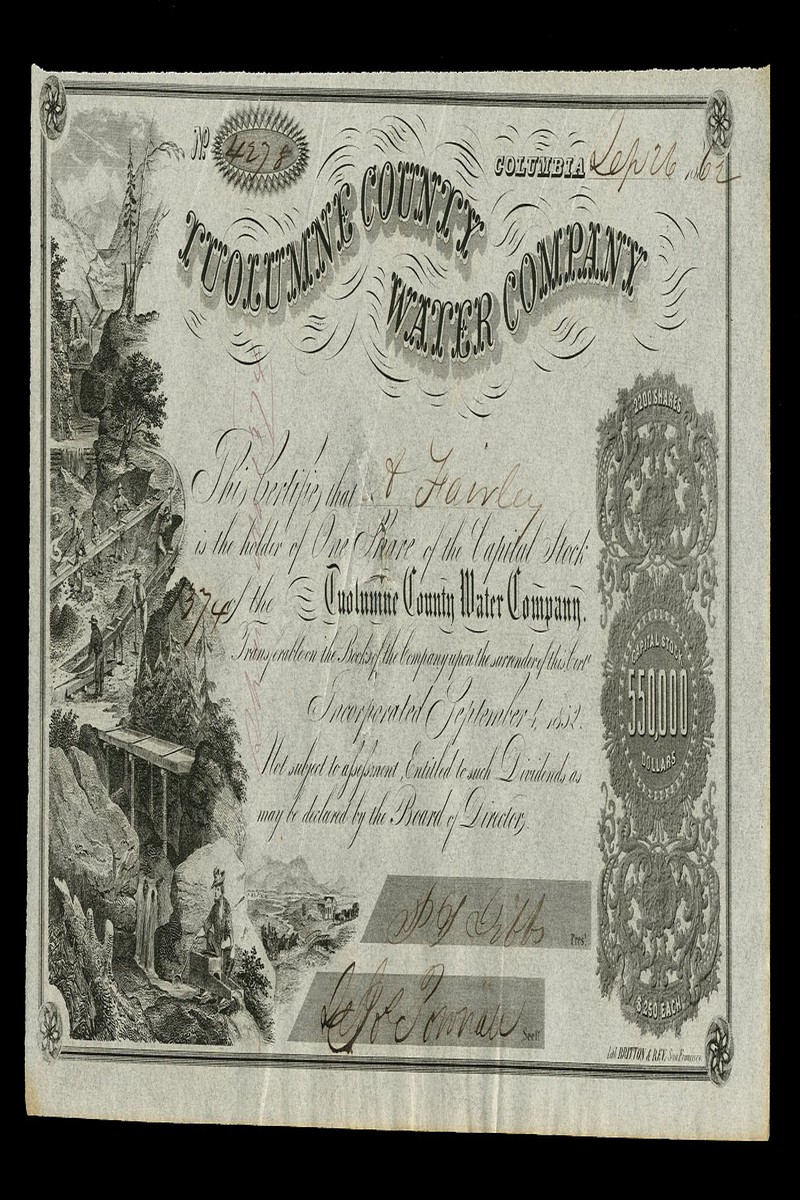 No 4278
COLUMBIA Sep 26 1862
TUOLUMNE COUNTY
WATER COMPANY
2200 SHARES
This Certifies that A Fairley
is the holder of One Share of the Capital Stock
1374 of the Tuolumne County Water Company.
Transferable on the Books of the Company upon the surrender of this Cert
Incorporated September 4, 1852.
CAPITAL STOCK
550,000
DOLLARS
Not subject to assessment, Entitled to such Dividends as
may be declared by the Board of Directors,
Gibbs Prest
Jos Pownall Secy
$ 250 EACH
Lith BRITTON & REY, San Francisco.